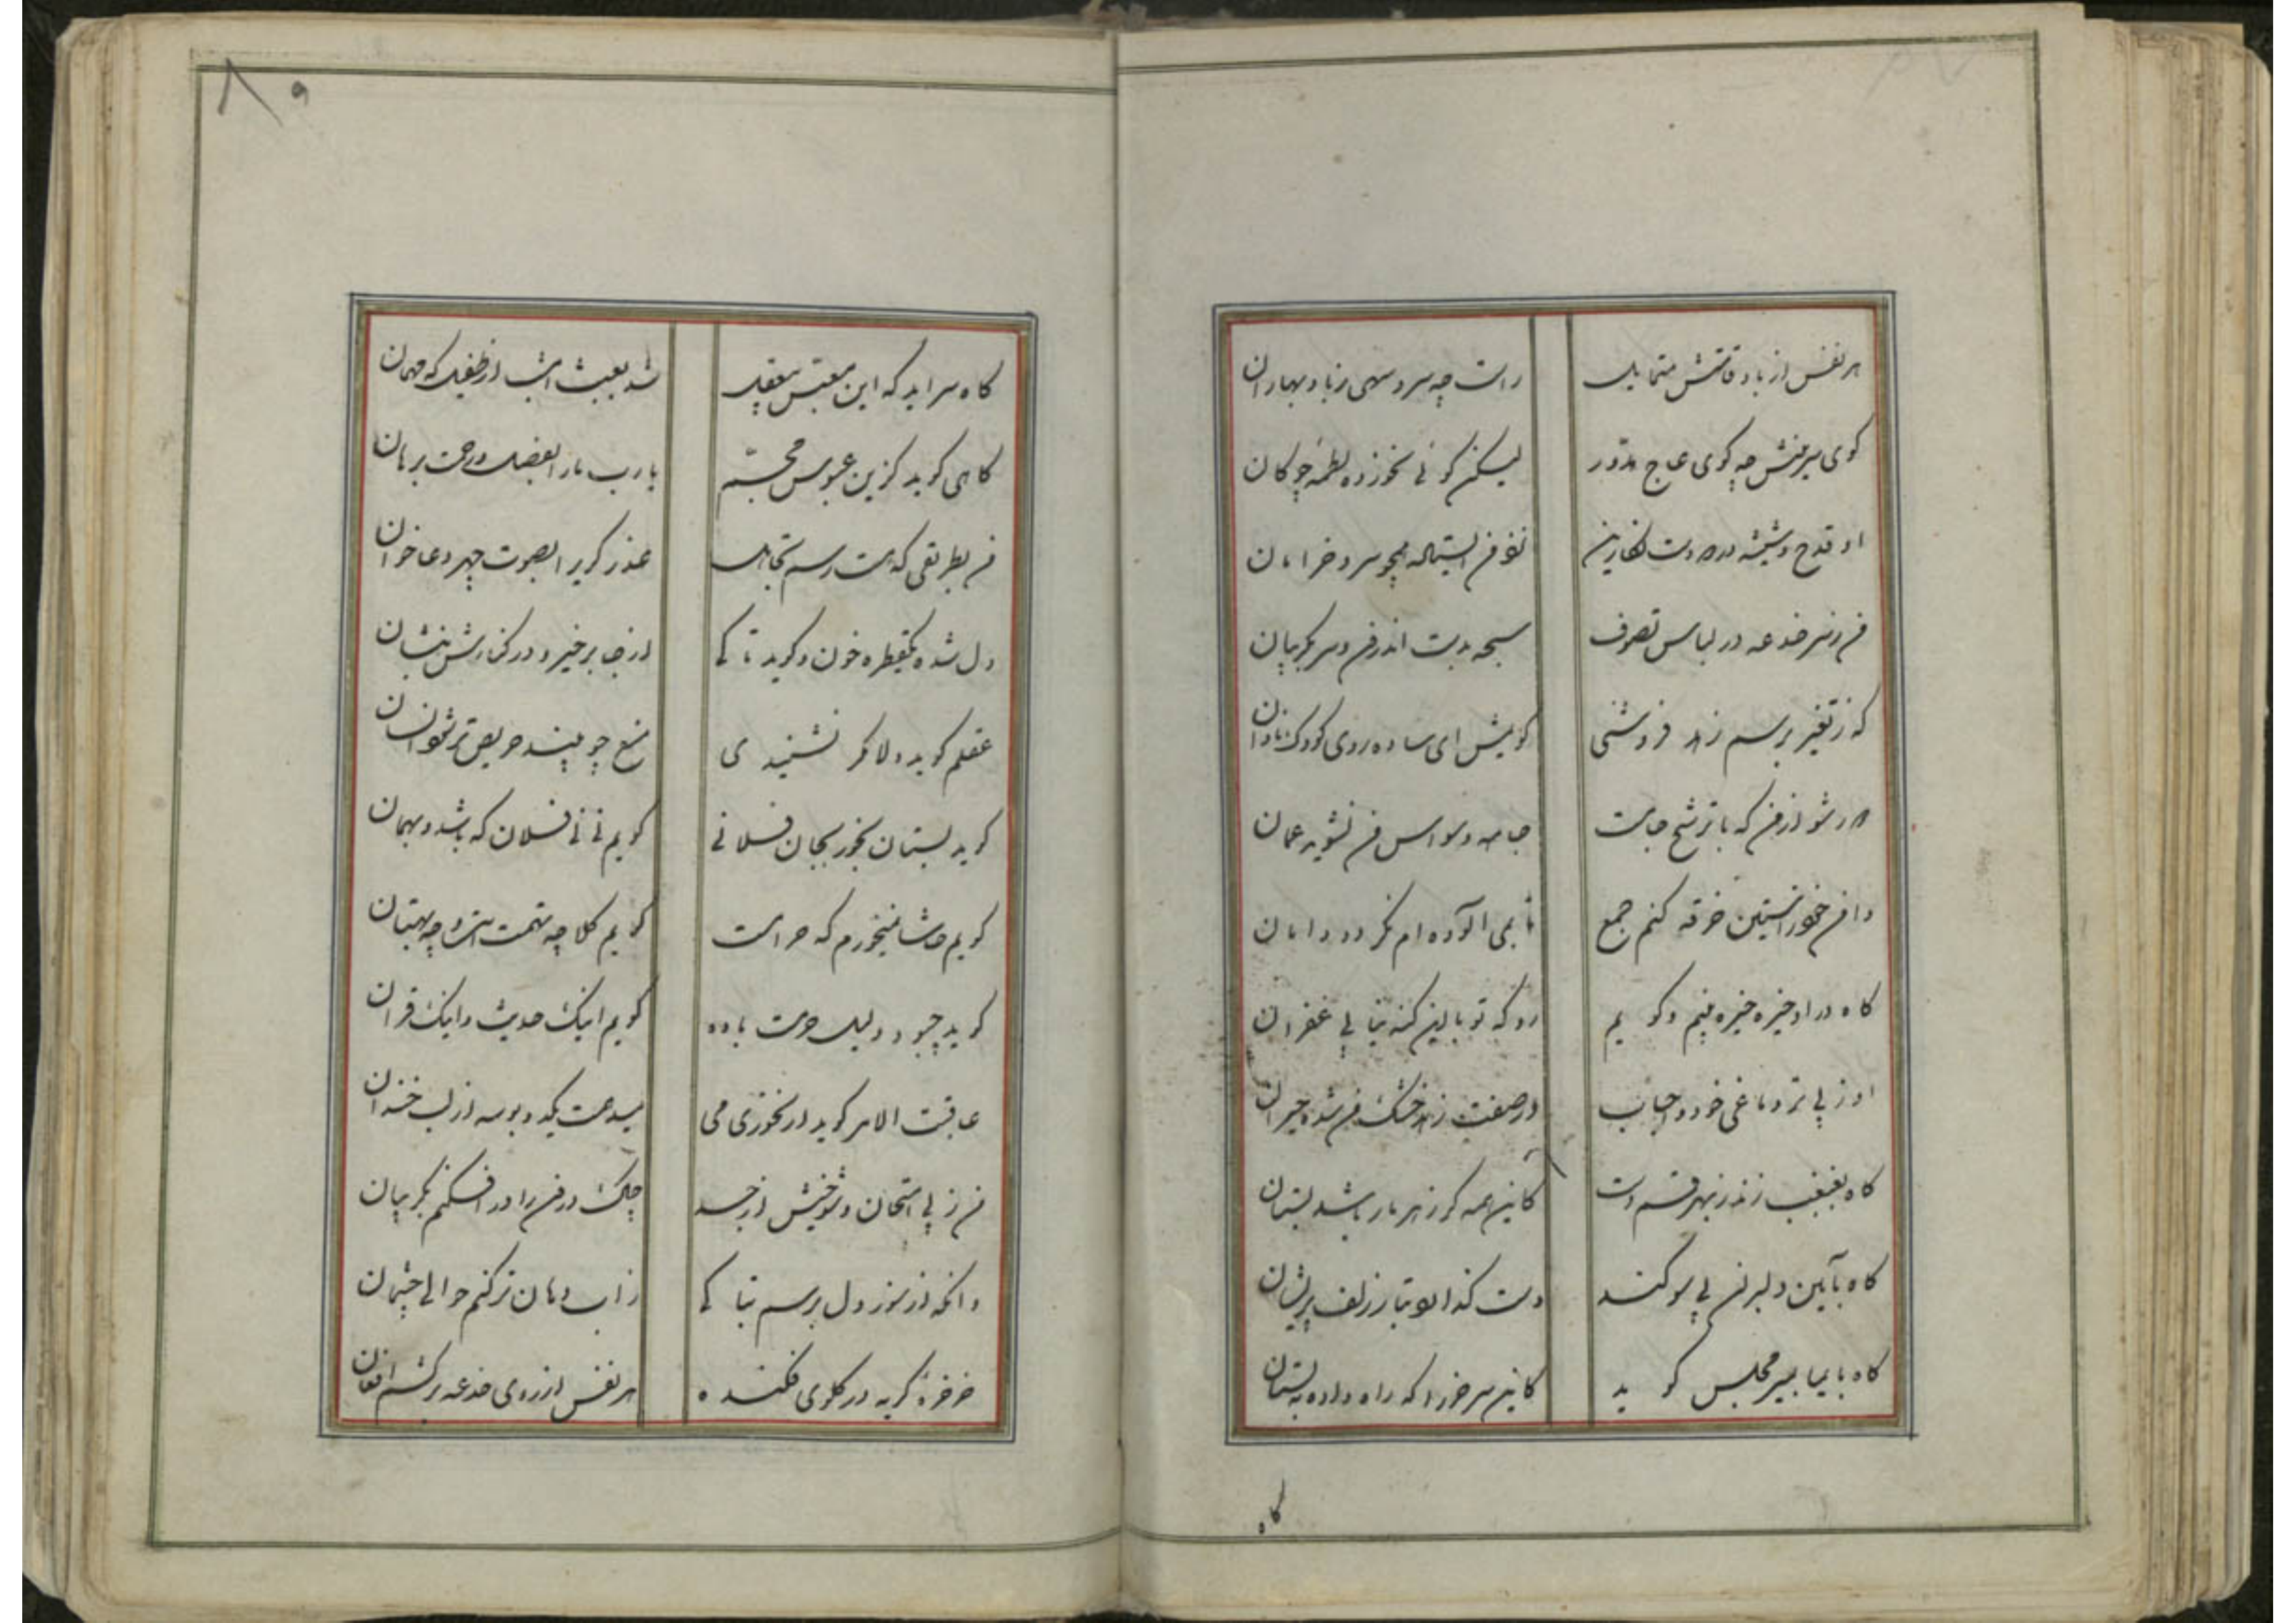 هر نفس از باد قامتش متمایل
راست چه سرو سهی ز باد بهاران
گوی سرینش چه گوی عاج مدور
لیکن گوئی نخورده لطمه چوگان
او قدح و شیشه در دو دست نگارین
من بلباس
سبحه بدست اندر من و سر بگریبان
من ز سر خدعه در لباس تصوف
که ز تغیر برسم زهد فروشی
گویمش ای ساده روی کودک نادان
دور شو از من که با ترشح جامت
جامه وسواس من نشوید عمان
دامن خود را ستین خرقه کنم جمع
تا بمی آلوده ام نگردد دامان
گاه در او خیره خیره بینم و گویم
رو که تو با این گنه نیابی غفران
او ز پی تر دماغی خود و احباب
در صفت زهد خشک من شده حیران
گاه بغبغب زند ز بهر قسم دست
کاین همه گر زهر مار باشد بستان
گاه بآیین دلبران پی سوگند
دست کند الوتار زلف پریشان
گاه بایما بمیر مجلس گوید
کاین سر خر را که راه داده به بستان
گاه
۸۹
گاه سراید که این معبس معقد
شد بعبث امشب از طفیل که مهمان
گاهی گوید کزین عبوس مجسم
یا رب ما را بفضل و رحمت برهان
من بطریقی که هست رسم تجاهل
عذر گریرا بصوت جهر دعا خوان
دل شده یکقطره خون و گوید تا کی
از جا برخیز و در کنارش بنشان
عقلم گوید دلا مگر نشنیدی
منع چو بیند حریص تر شود انسان
گوید بستان بخور بجان فلانی
گویم نی نی فلان که باشد و بهمان
گویم حاشا نمیخورم که حرامست
گویم کلا چه تهمت است و چه بهتان
گوید چبود دلیل حرمت باده
گویم اینک حدیث و اینک قرآن
عاقبت الامر گوید ار نخوری می
میدهمت یکدو بوسه از لب خندان
من ز پی امتحان و شوخیش از جد
چاک در من را در افکنم بگریبان
وانگه از سوز دل برسم تباکی
ز آب دهان تر کنم حوالی چشمان
خرخره گریه در گلوی فکنده
هر نفس از روی خدعه برکشم افغان